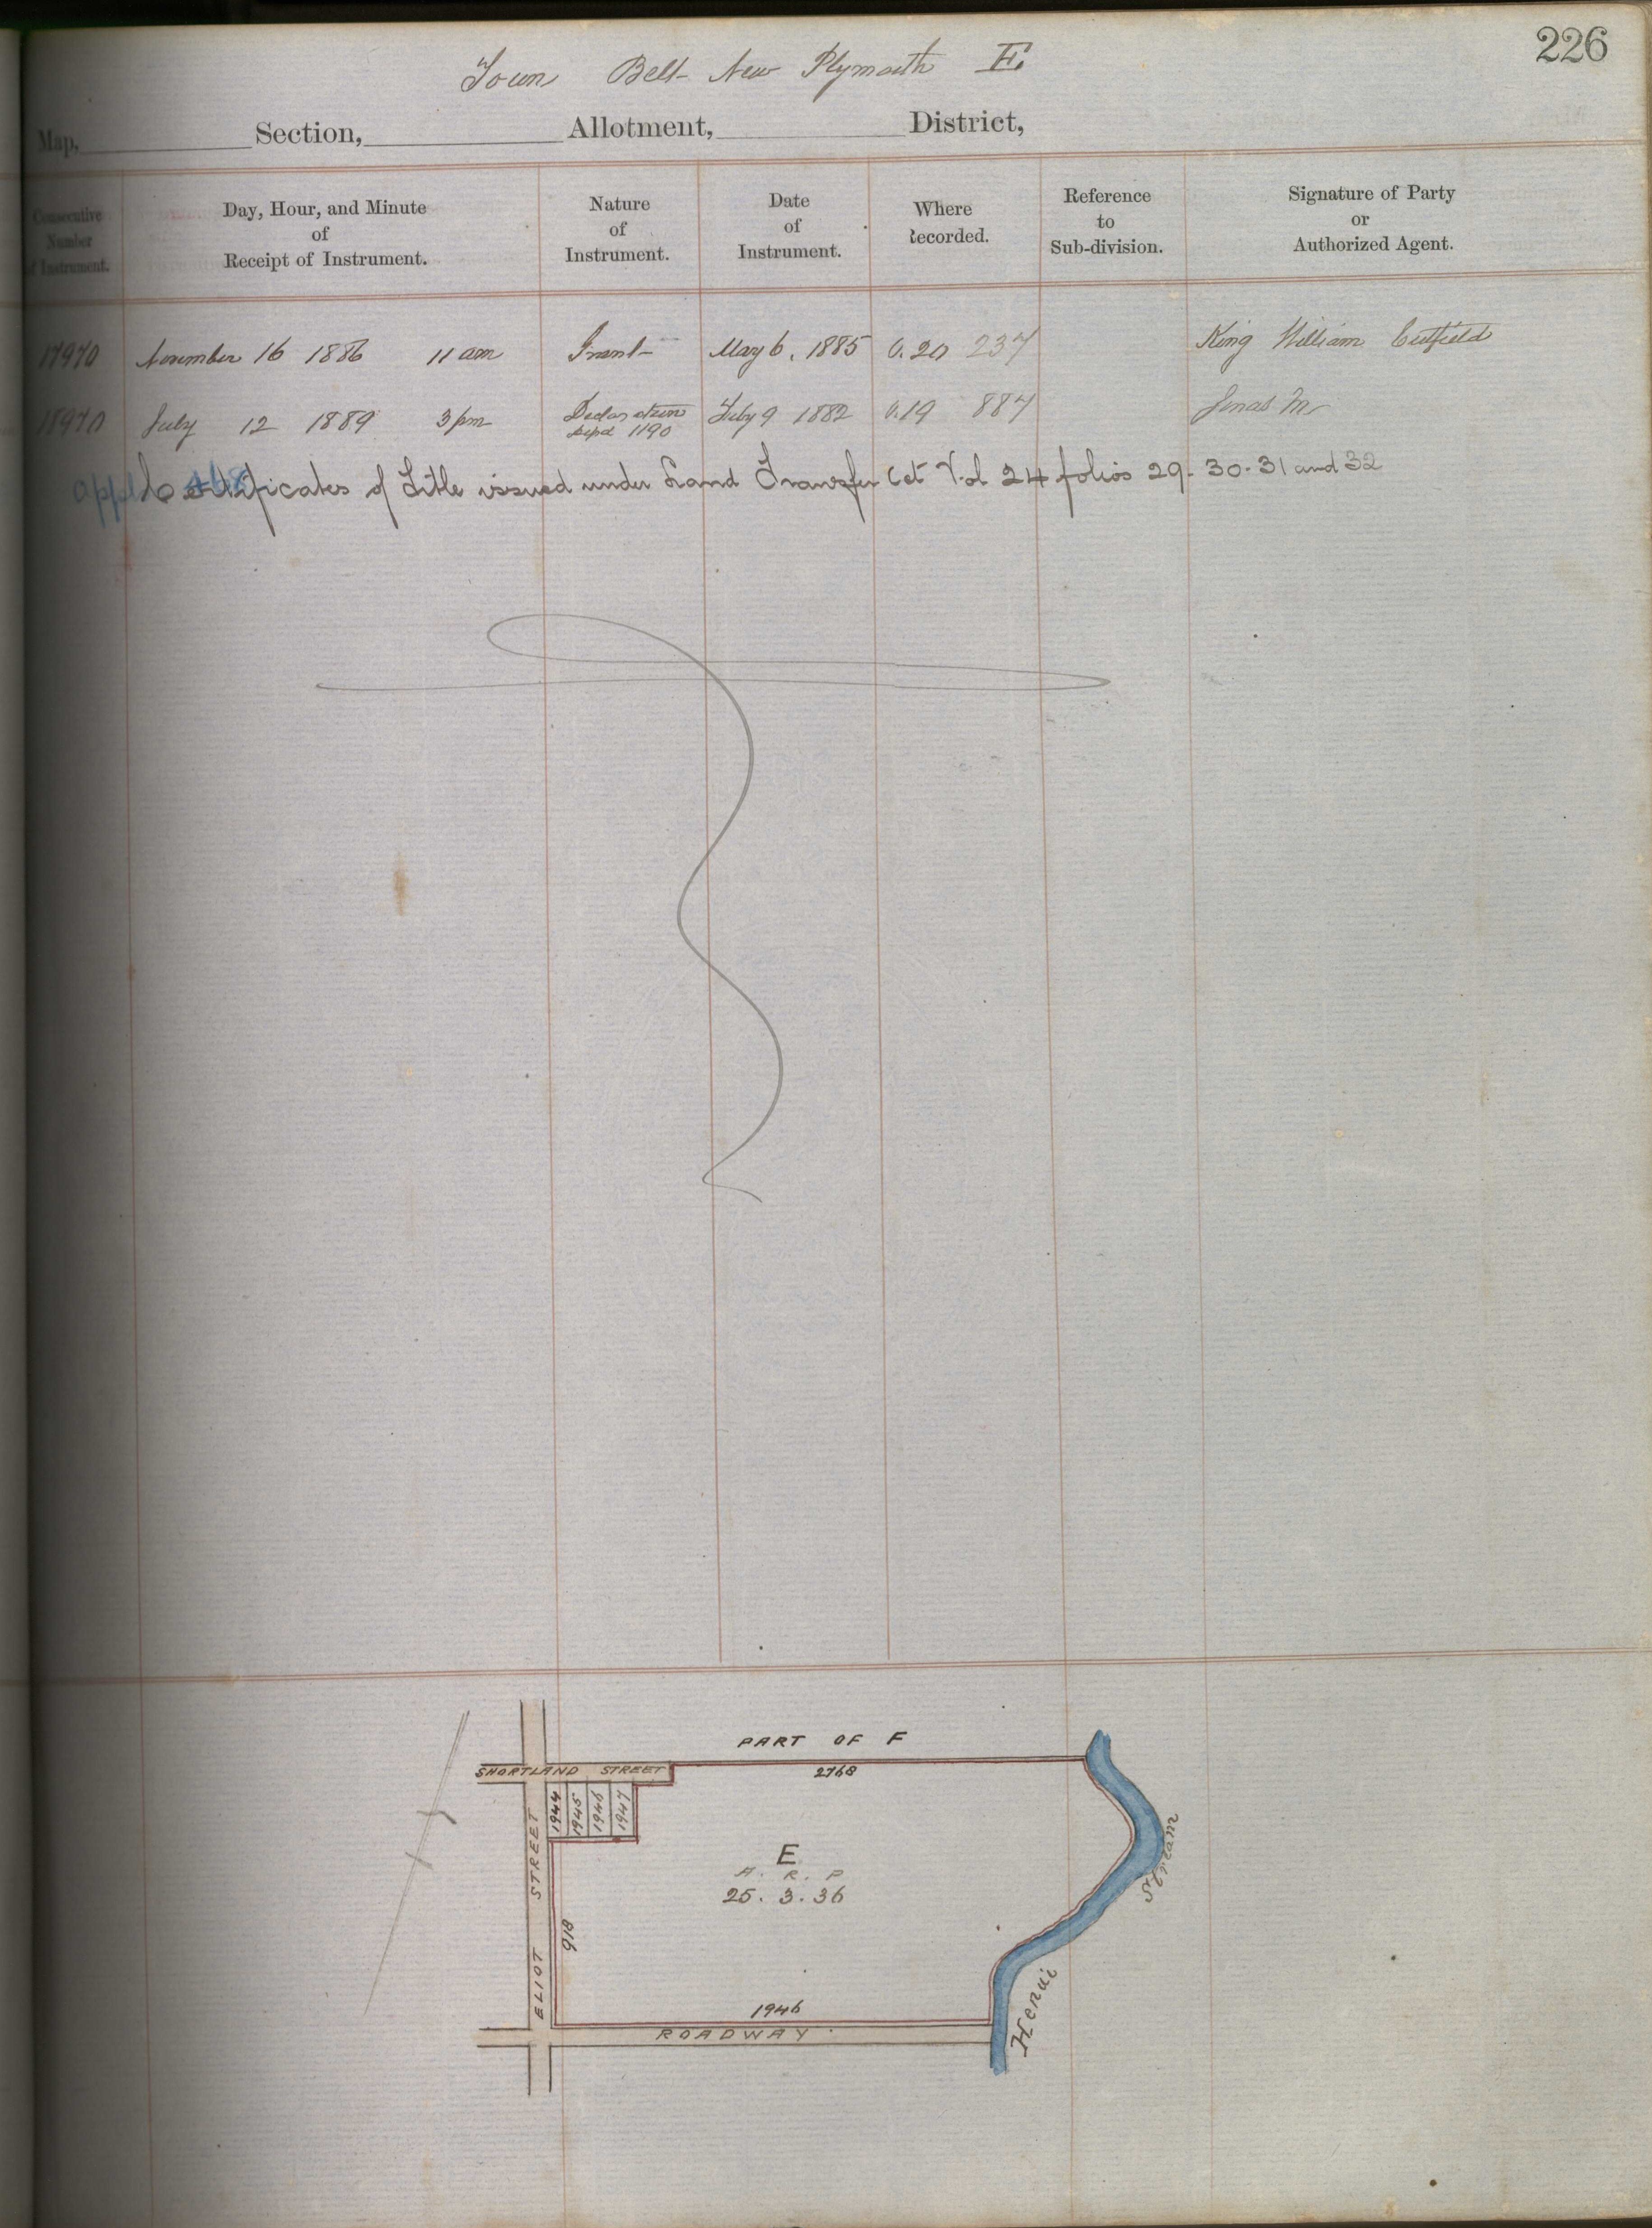 226
Town Belt New Plymouth E.
Map, Section, Allotment, District,
Consecutive Number of Instrument.
Day, Hour, and Minute of Receipt of Instrument.
Nature of Instrument.
Date of Instrument.
Where Recorded.
Reference to Sub-division.
Signature of Party or Authorized Agent.
November 16 1886 11 am Grant May 6, 1885 C. 20 237 King William Cutfield
July 12 1889 3 pm Declaration 1190 July 9 1882 887
Certificates of Title issued under Land Transfer Act Vol 24 folios 29. 30. 31 and 32
PART OF F
SHORTLAND STREET
2768
1944
1945
1946
1947
ELIOT STREET
918
E
A. R. P
25. 3. 36
1946
ROADWAY
Henui Stream